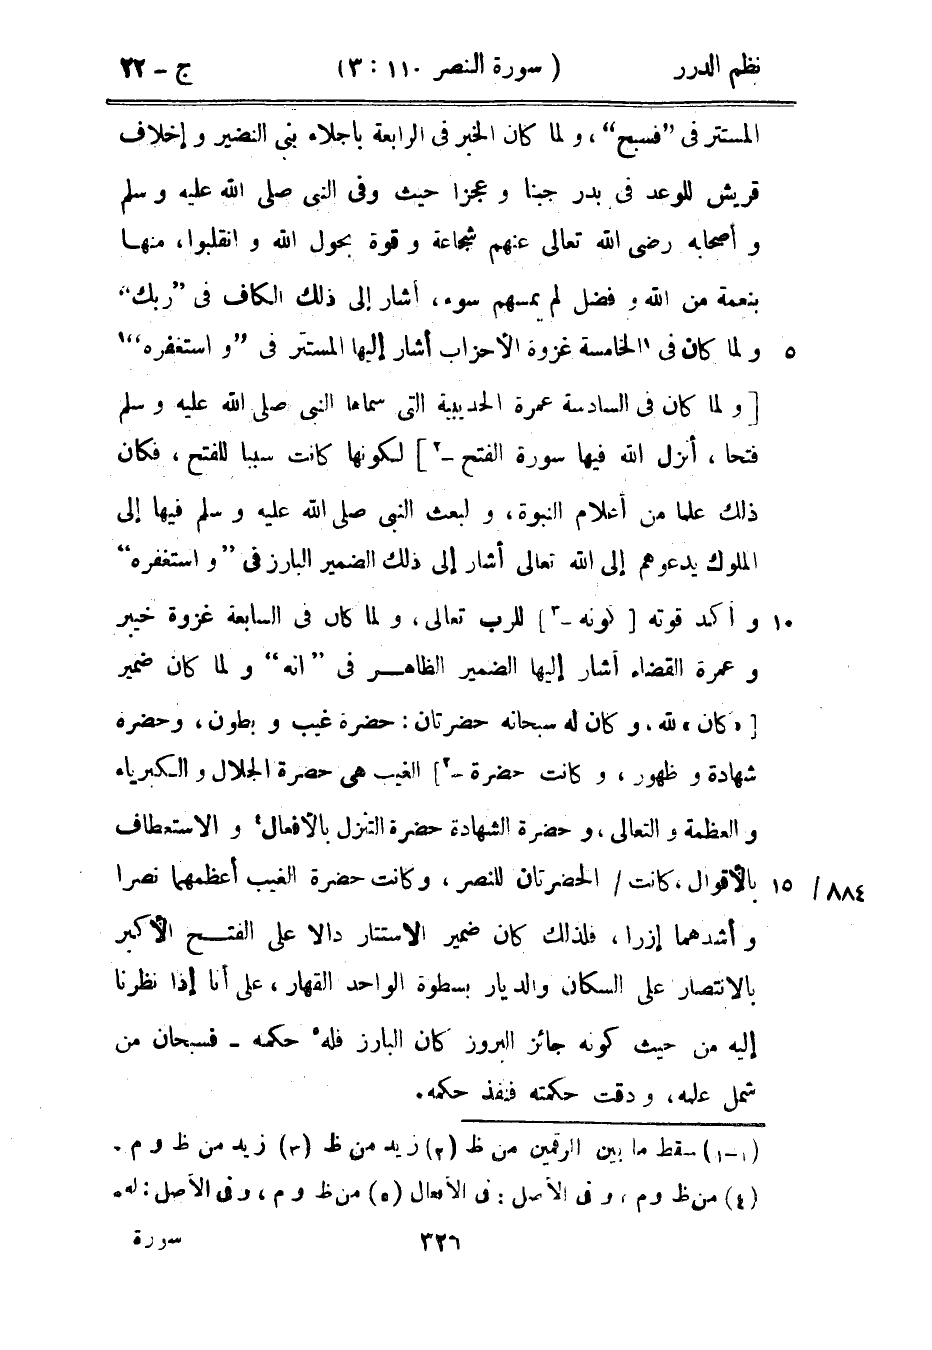 نظم الدرر ( سورة النصر ١١٠ : ٣) ج – ٢٢
المستتر فى ”فسبح“ ، و لما كان الخبر فى الرابعة باجلاء بنى النضير و إخلاف
قريش للوعد فى بدر جبنا و عجزا حيث وفى النبى صلى الله عليه و سلم
و أصحابه رضى الله تعالى عنهم شجاعة و قوة بحول الله و انقلبوا ، منها
بنعمة من الله و فضل لم يمسهم سوء ، أشار إلى ذلك الكاف فى ”ربك“
٥ و لما كان فى ١الخامسة غزوة الأحزاب أشار إليها المستتر فى ”و استغفره“١
[ و لما كان فى السادسة عمرة الحديبية التى سماها النبى صلى الله عليه و سلم
فتحا ، أنزل الله فيها سورة الفتح –٢] لكونها كانت سببا للفتح ، فكان
ذلك علما من أعلام النبوة ، و لبعث النبى صلى الله عليه و سلم فيها إلى
الملوك يدعوهم إلى الله تعالى أشار إلى ذلك الضمير البارز فى ”و استغفره“
١٠ و أكد قوته [ كونه –٣] للرب تعالى ، و لما كان فى السابعة غزوة خيبر
و عمرة القضاء أشار إليها الضمير الظاهر فى ”انه“ و لما كان ضمير
[ «كان» لله ، و كان له سبحانه حضرتان : حضرة غيب و بطون ، وحضرة
شهادة و ظهور ، و كانت حضرة –٢] الغيب هى حضرة الجلال و الكبرياء
و العظمة و التعالى ، و حضرة الشهادة حضرة التنزل بالأفعال٤ و الاستعطاف
٨٨٤/ ١٥ بالأقوال ، كانت / الحضرتان للنصر ، وكانت حضرة الغيب أعظمهما نصرا
و أشدهما إزرا ، فلذلك كان ضمير الاستتار دالا على الفتح الأكبر
بالانتصار على السكان والديار بسطوة الواحد القهار ، على أنا إذا نظرنا
إليه من حيث كونه جائز البروز كان البارز فله٥ حكمه – فسبحان من
شمل علمه ، و دقت حكمته فنفذ حكمه .
(١–١) سقط ما بين الرقمين من ظ (٢) زيد من ظ (٣) زيد من ظ و م .
(٤) من ظ و م ، و فى الأصل : فى الأفعال (٥) من ظ و م ، و فى الأصل : له .
٣٢٦ سورة